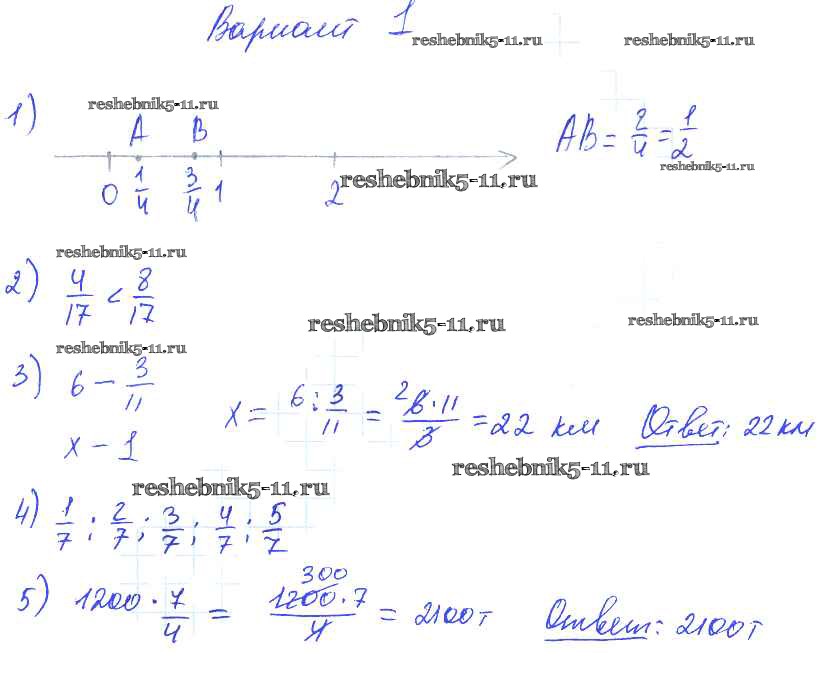 Вариант 1
reshebnik5-11.ru reshebnik5-11.ru
reshebnik5-11.ru
1) A B AB = 2/4 = 1/2
0 1/4 3/4 1 2
reshebnik5-11.ru reshebnik5-11.ru
reshebnik5-11.ru
2) 4/17 < 8/17
reshebnik5-11.ru reshebnik5-11.ru
reshebnik5-11.ru
3) 6 – 3/11
x – 1 x = 6 : 3/11 = 6·11/3 = 22 км Ответ: 22 км
2
reshebnik5-11.ru reshebnik5-11.ru
4) 1/7 ; 2/7 ; 3/7 ; 4/7 ; 5/7
300
5) 1200 · 7/4 = 1200·7/4 = 2100т Ответ: 2100т